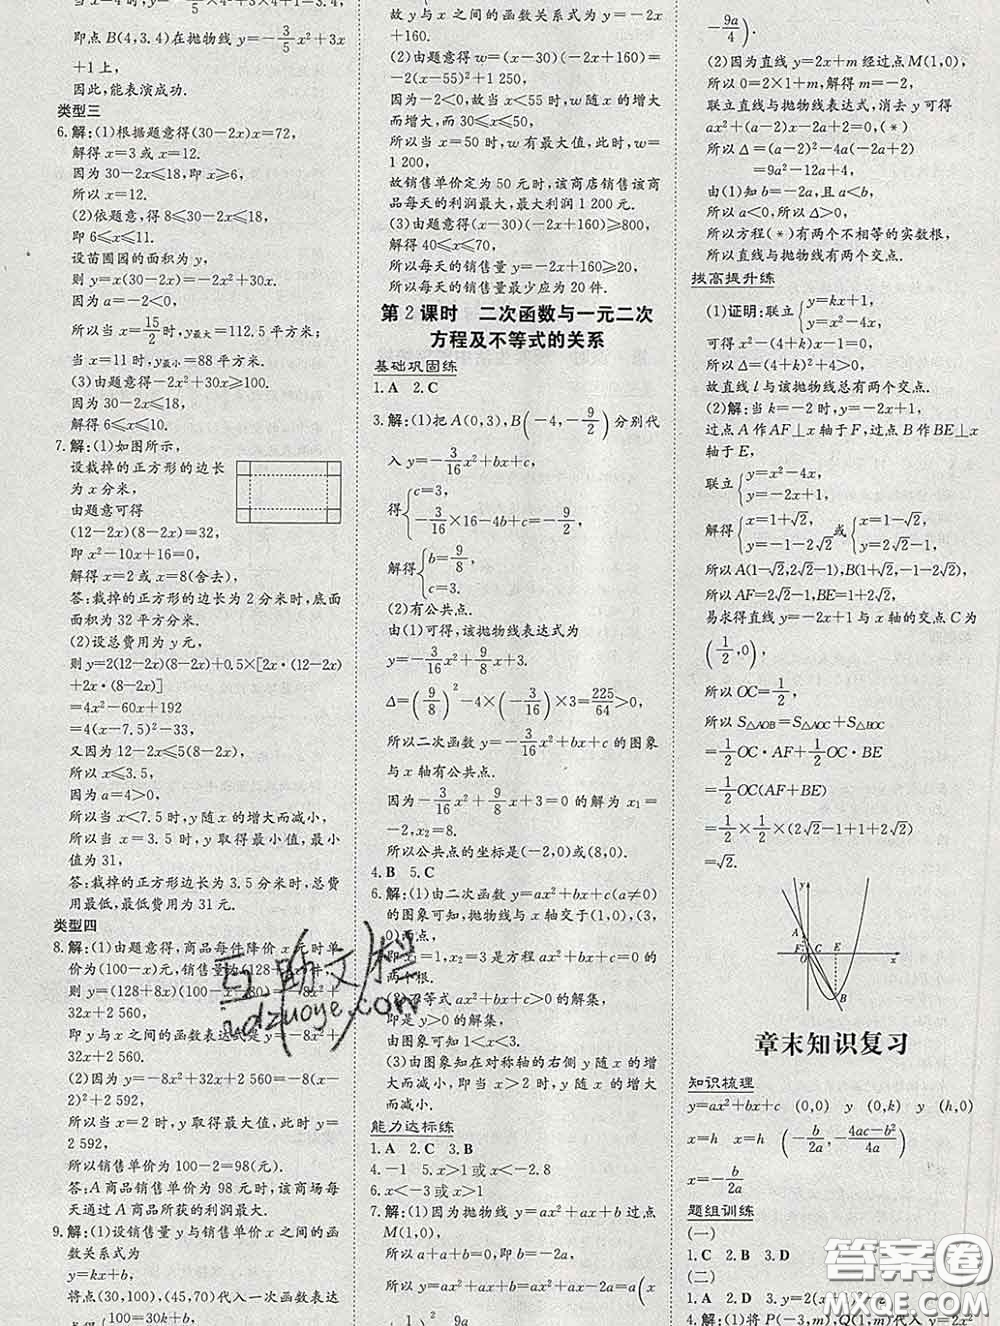 当 x=4 时,y=-3/5×4²+3×4+1=3.4,
即点 B(4,3.4)在抛物线 y=-3/5x²+3x
+1上,
因此,能表演成功.
类型三
6.解:(1)根据题意得(30-2x)x=72,
解得 x=3 或 x=12.
因为 30-2x≤18,即 x≥6,
所以 x=12.
(2)依题意,得 8≤30-2x≤18,
即 6≤x≤11.
设苗圃园的面积为 y,
则 y=x(30-2x)=-2x²+30x.
因为 a=-2<0,
所以当 x=15/2时,y最大=112.5 平方米;
当 x=11 时,y最小=88 平方米.
(3)由题意得-2x²+30x≥100.
因为 6≤x≤11,
解得 6≤x≤10.
7.解:(1)如图所示,
设裁掉的正方形的边长
为 x 分米,
由题意可得
(12-2x)(8-2x)=32,
即 x²-10x+16=0,
解得 x=2 或 x=8(舍去),
答:裁掉的正方形的边长为 2 分米时,底面
面积为 32 平方分米.
(2)设总费用为 y 元,
则 y=2(12-2x)(8-2x)+0.5×[2x·(12-2x)
+2x·(8-2x)]
=4x²-60x+192
=4(x-7.5)²-33,
又因为 12-2x≤5(8-2x),
所以 x≤3.5,
因为 a=4>0,
所以当 x<7.5 时,y 随 x 的增大而减小,
所以当 x=3.5 时,y 取得最小值,最小
值为 31,
答:裁掉的正方形边长为 3.5 分米时,总费
用最低,最低费用为 31 元.
类型四
8.解:(1)由题意得,商品每件降价 x 元时单
价为(100-x)元,销售量为(128+8x)件,
则 y=(128+8x)(100-x-80)=-8x²+
32x+2 560,
即 y 与 x 之间的函数表达式是 y=-8x²+
32x+2 560.
(2)因为 y=-8x²+32x+2 560=-8(x-
2)²+2 592,
所以当 x=2 时,y 取得最大值,此时 y=
2 592,
所以销售单价为 100-2=98(元).
答:A 商品销售单价为 98 元时,该商场每
天通过 A 商品所获的利润最大.
9.解:(1)设销售量 y 与销售单价 x 之间的函
数关系式为
y=kx+b,
将点(30,100),(45,70)代入一次函数表达
100=30k+b,
故 y 与 x 之间的函数关系式为 y=-2x
+160.
(2)由题意得 w=(x-30)(-2x+160)=
-2(x-55)²+1 250,
因为-2<0,故当 x<55 时,w 随 x 的增大
而增大,而 30≤x≤50,
所以当 x=50 时,w 有最大值,此时,w=
1 200,
故销售单价定为 50 元时,该商店销售该商
品每天的利润最大,最大利润 1 200 元.
(3)由题意得(x-30)(-2x+160)≥800,
解得 40≤x≤70,
所以每天的销售量 y=-2x+160≥20,
所以每天的销售量最少应为 20 件.
第 2 课时 二次函数与一元二次
方程及不等式的关系
基础巩固练
1.A 2.C
3.解:(1)把 A(0,3),B(-4,-9/2)分别代
入 y=-3/16x²+bx+c,
得{c=3, -3/16×16-4b+c=-9/2,
解得{b=9/8, c=3.
(2)有公共点.
由(1)可得,该抛物线表达式为
y=-3/16x²+9/8x+3.
Δ=(9/8)²-4×(-3/16)×3=225/64>0,
所以二次函数 y=-3/16x²+bx+c 的图象
与 x 轴有公共点.
因为-3/16x²+9/8x+3=0 的解为 x₁=
-2,x₂=8.
所以公共点的坐标是(-2,0)或(8,0).
4.B 5.C
6.解:(1)由二次函数 y=ax²+bx+c(a≠0)
的图象可知,抛物线与 x 轴交于(1,0),(3,
0)两点,
即 x₁=1,x₂=3 是方程 ax²+bx+c=0 的
两个根.
(2)不等式 ax²+bx+c>0 的解集,
即是 y>0 的解集,
由图象可知 1<x<3.
(3)由图象知在对称轴的右侧 y 随 x 的增
大而减小,即当 x>2 时,y 随 x 的增大
而减小.
能力达标练
1.A 2.C 3.B
4.-1 5.x>1 或 x<-2.8
6.x<-3 或 x>1
7.解:(1)因为抛物线 y=ax²+ax+b 过点
M(1,0),
所以 a+a+b=0,即 b=-2a,
所以 y=ax²+ax+b=ax²+ax-2a=a(x
-9a/4).
(2)因为直线 y=2x+m 经过点 M(1,0),
所以 0=2×1+m,解得 m=-2,
联立直线与抛物线表达式,消去 y 可得
ax²+(a-2)x-2a+2=0,(*)
所以 Δ=(a-2)²-4a(-2a+2)
=9a²-12a+4,
由(1)知 b=-2a,且 a<b,
所以 a<0,所以 Δ>0,
所以方程(*)有两个不相等的实数根,
所以直线与抛物线有两个交点.
拔高提升练
(1)证明:联立{y=kx+1, y=x²-4x,
x²-(4+k)x-1=0,
所以 Δ=(4+k)²+4>0,
故直线 l 与该抛物线总有两个交点.
(2)解:当 k=-2 时,y=-2x+1,
过点 A 作 AF⊥x 轴于 F,过点 B 作 BE⊥x
轴于 E,
联立{y=x²-4x, y=-2x+1,
解得{x=1+√2, y=-1-2√2 或{x=1-√2, y=2√2-1,
所以 A(1-√2,2√2-1),B(1+√2,-1-2√2),
所以 AF=2√2-1,BE=1+2√2,
易求得直线 y=-2x+1 与 x 轴的交点 C 为
(1/2,0),
所以 OC=1/2,
所以 S△AOB=S△AOC+S△BOC
=1/2OC·AF+1/2OC·BE
=1/2OC(AF+BE)
=1/2×1/2×(2√2-1+1+2√2)
=√2.
y
A
F
O
C
E
x
B
章末知识复习
知识梳理
y=ax²+bx+c (0,0) y (0,k) y (h,0)
x=h x=h (-b/2a,4ac-b²/4a)
x=-b/2a
题组训练
(一)
1.C 2.B 3.D
(二)
1.D 2.A 3.D
4.解:(1)将 P(-3,m),Q(1,m)代入 y=2x²
互助文档
hdzuoye.com
答案圈
MXQE.COM